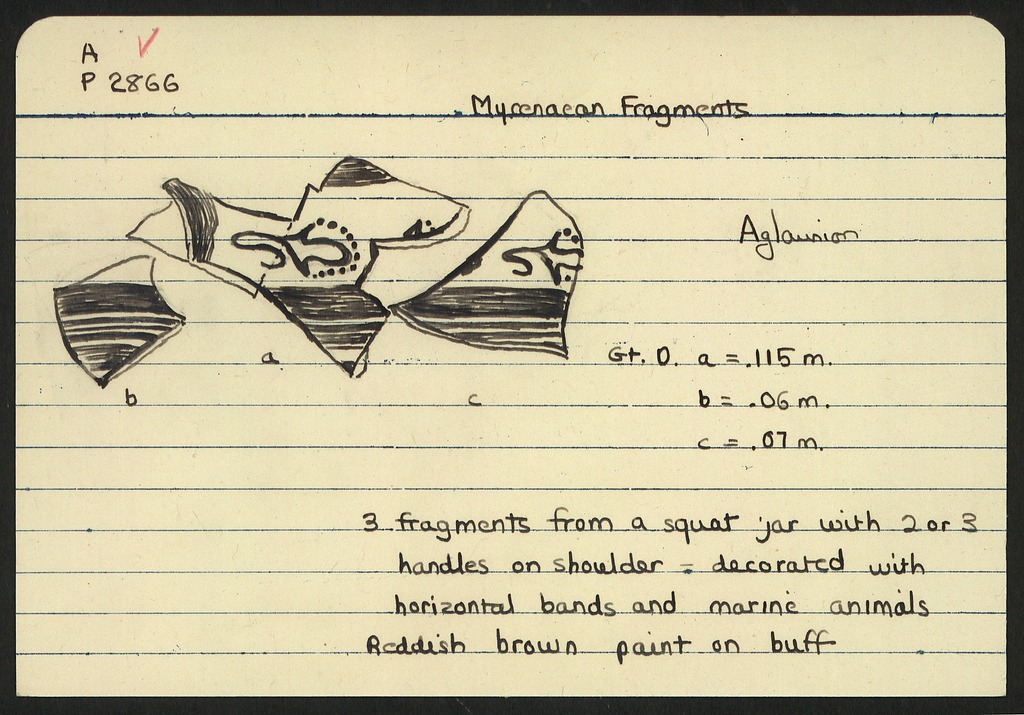 A
P 2866
Mycenaean Fragments
Aglaurion
a
b
c
Gt. D. a = .115 m.
b = .06 m.
c = .07 m.
3 fragments from a squat jar with 2 or 3
handles on shoulder = decorated with
horizontal bands and marine animals
Reddish brown paint on buff